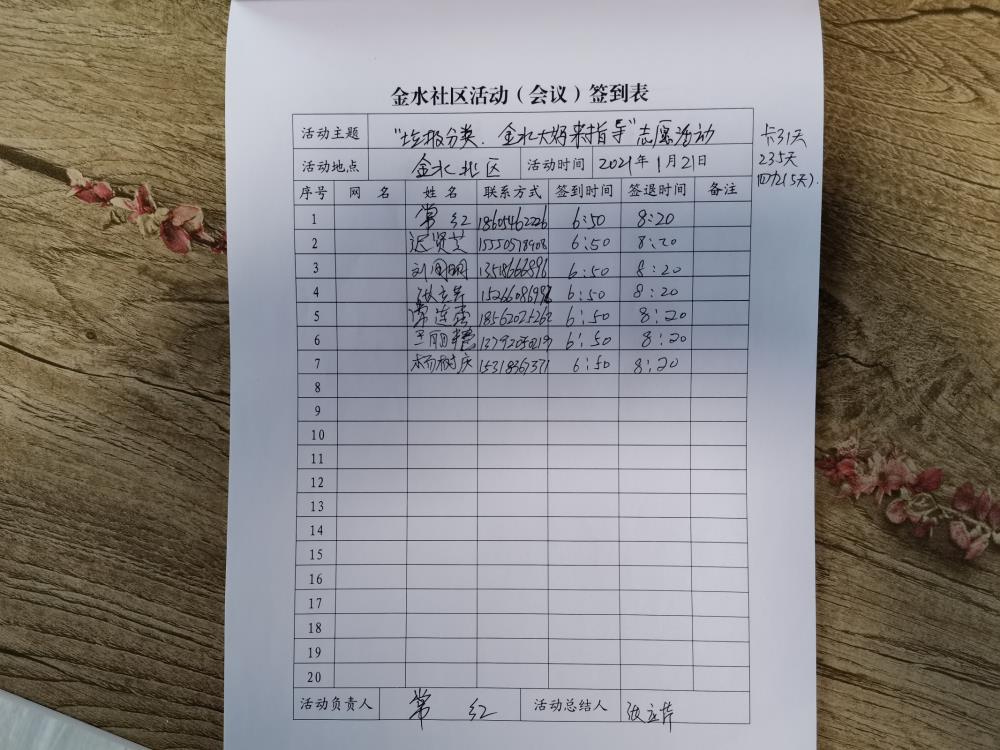 金水社区活动（会议）签到表
活动主题 "垃圾分类．金水大妈来指导"志愿活动
卡31天
235天
四九(5天).
活动地点 金水北区 活动时间 2021年1月21日
序号 网 名 姓 名 联系方式 签到时间 签退时间 备注
1 常红 18605462226 6:50 8:20
2 迟贤芝 6:50 8:20
3 刘国明 13518666896 6:50 8:20
4 张立芹 6:50 8:20
5 常连杰 6:50 8:20
6 6:50 8:20
7 杨树庆 15318367371 6:50 8:20
8
9
10
11
12
13
14
15
16
17
18
19
20
活动负责人 常红 活动总结人 张立芹